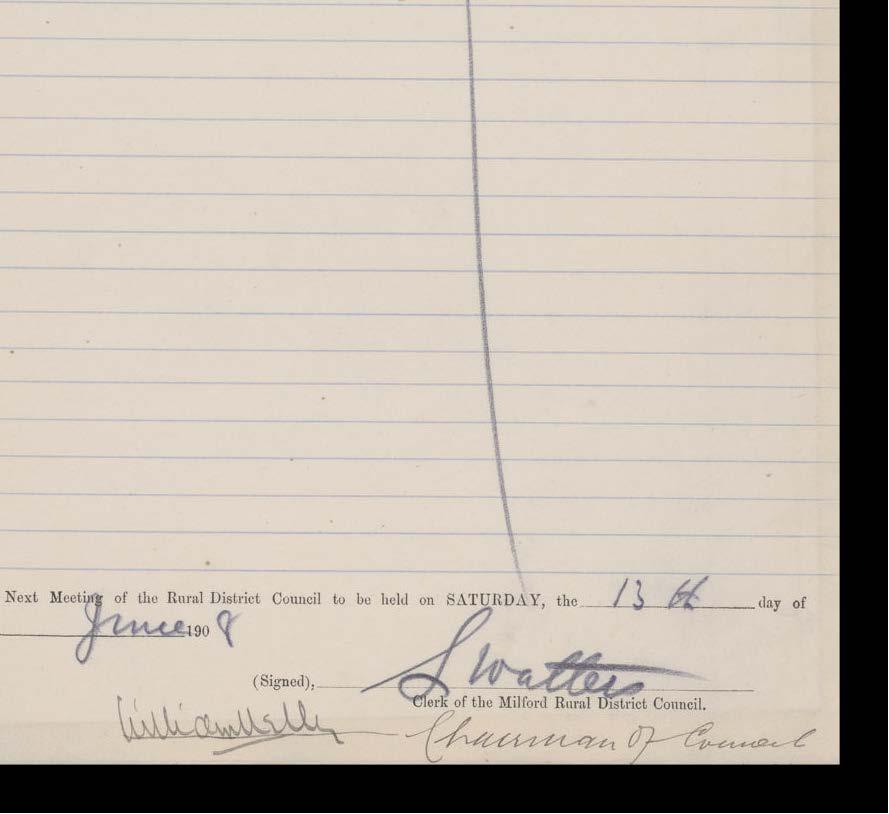 Next Meeting of the Rural District Council to be held on SATURDAY, the 13th day of
June 1908
(Signed), S Watters
Clerk of the Milford Rural District Council.
William Chairman of Council